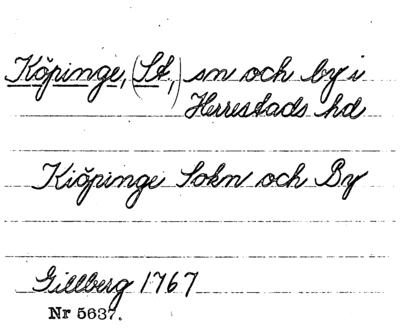 Köpinge, (St.,) sn och by i
Herrestads hd
Kiöpinge Sokn och By
Gillberg 1767
Nr 5637.